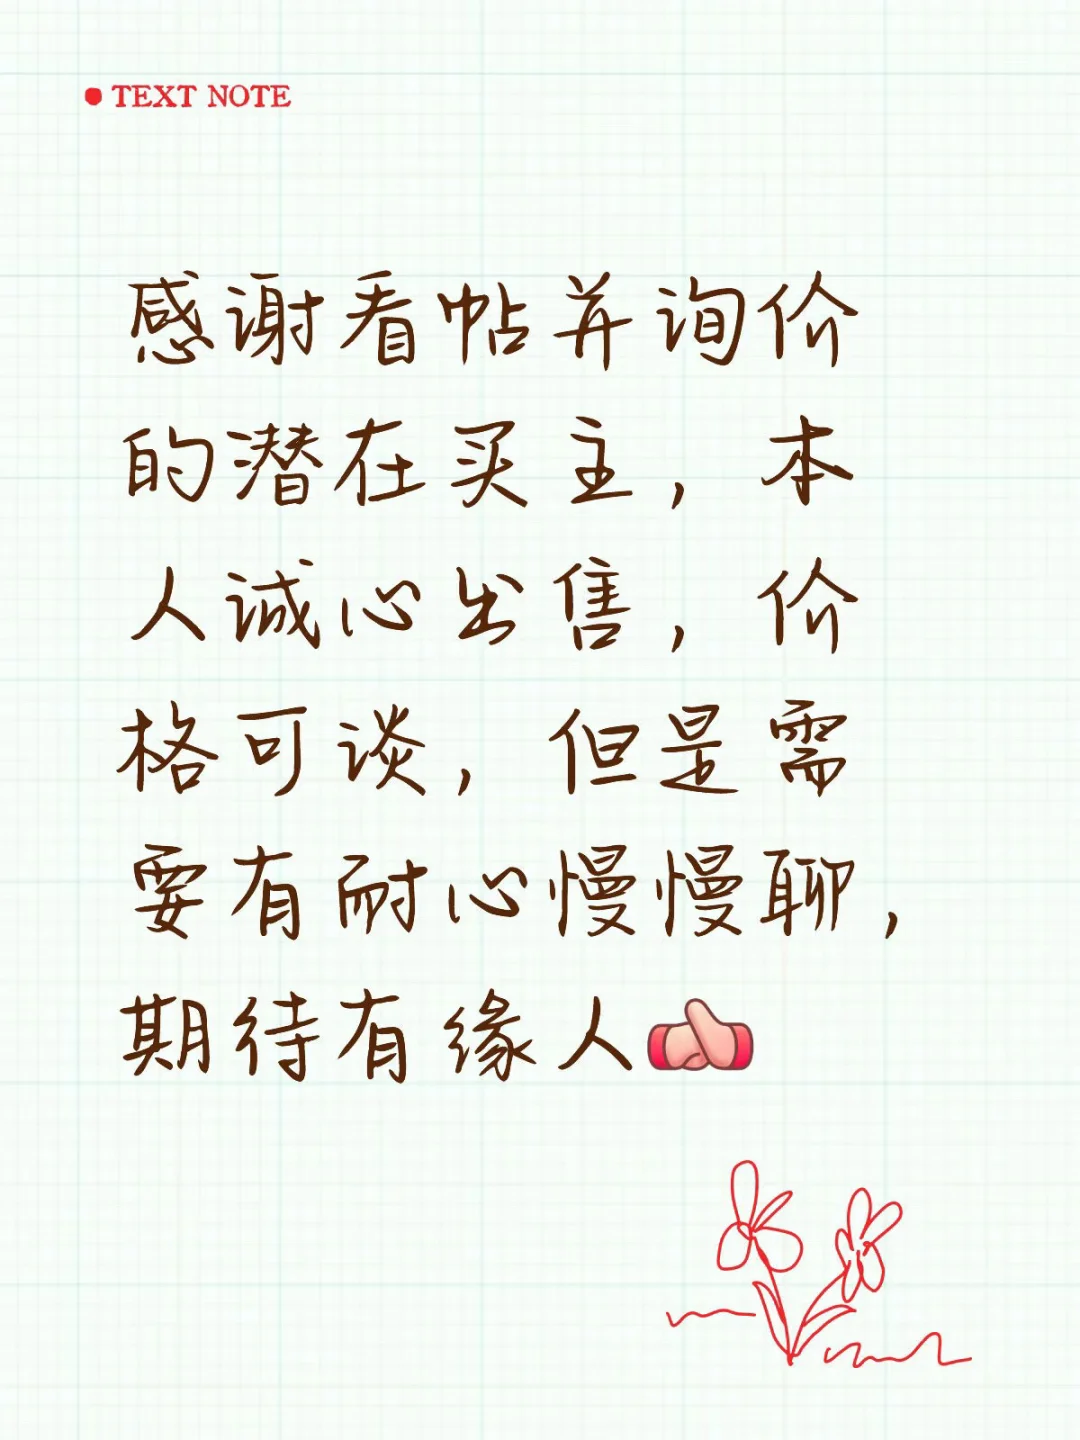 TEXT NOTE
感谢看帖并询价
的潜在买主，本
人诚心出售，价
格可谈，但是需
要有耐心慢慢聊，
期待有缘人